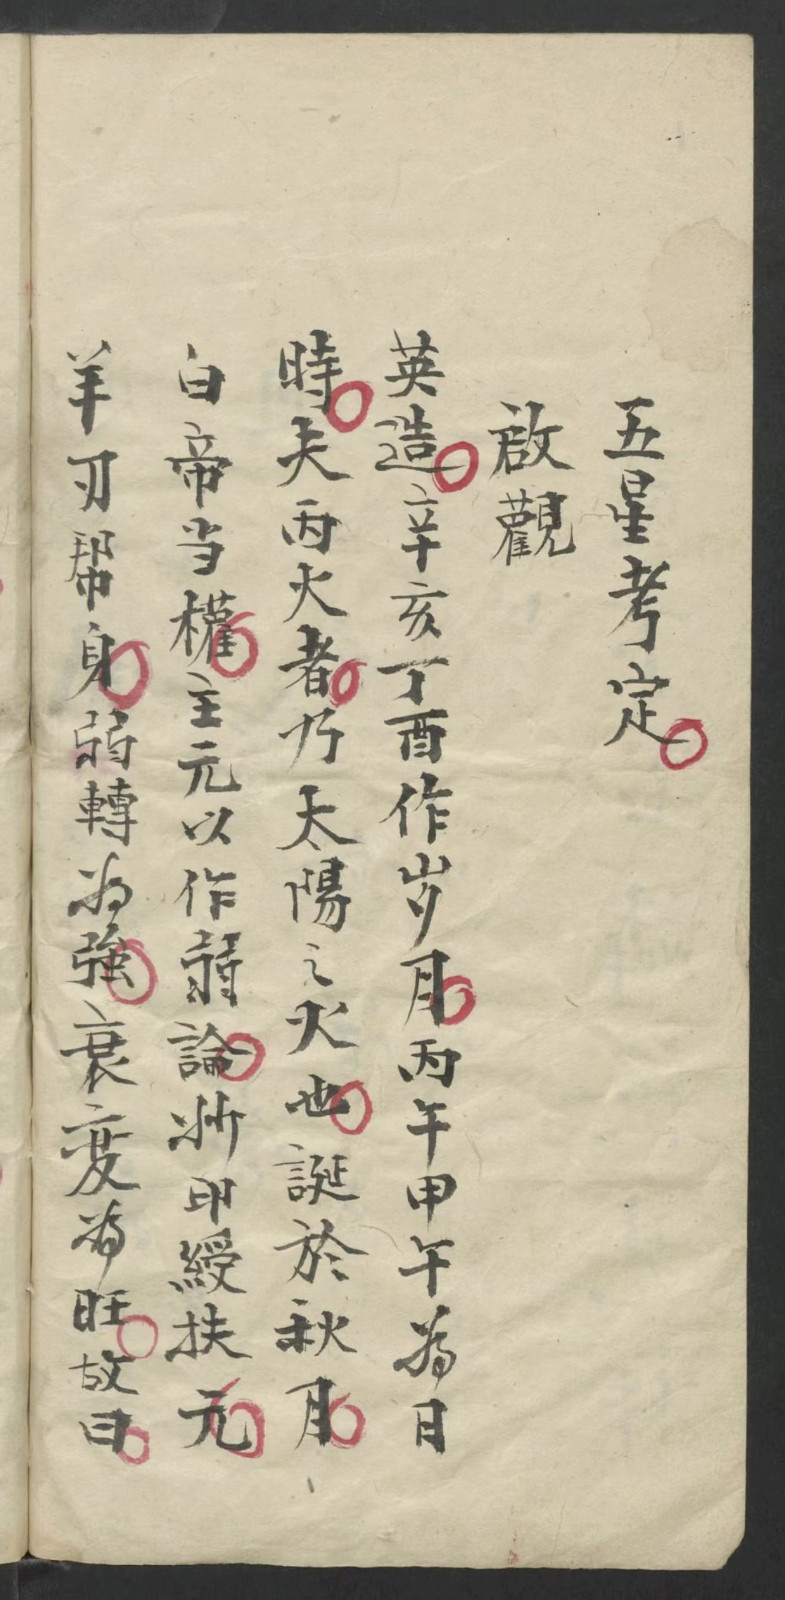 五星考定
啟觀
英造辛亥丁酉作岁月丙午甲午為日
時夫丙火者乃太陽之火也誕於秋月
白帝当權主元以作弱論妙印綬扶元
羊刃幫身弱轉為強衰变為旺故曰